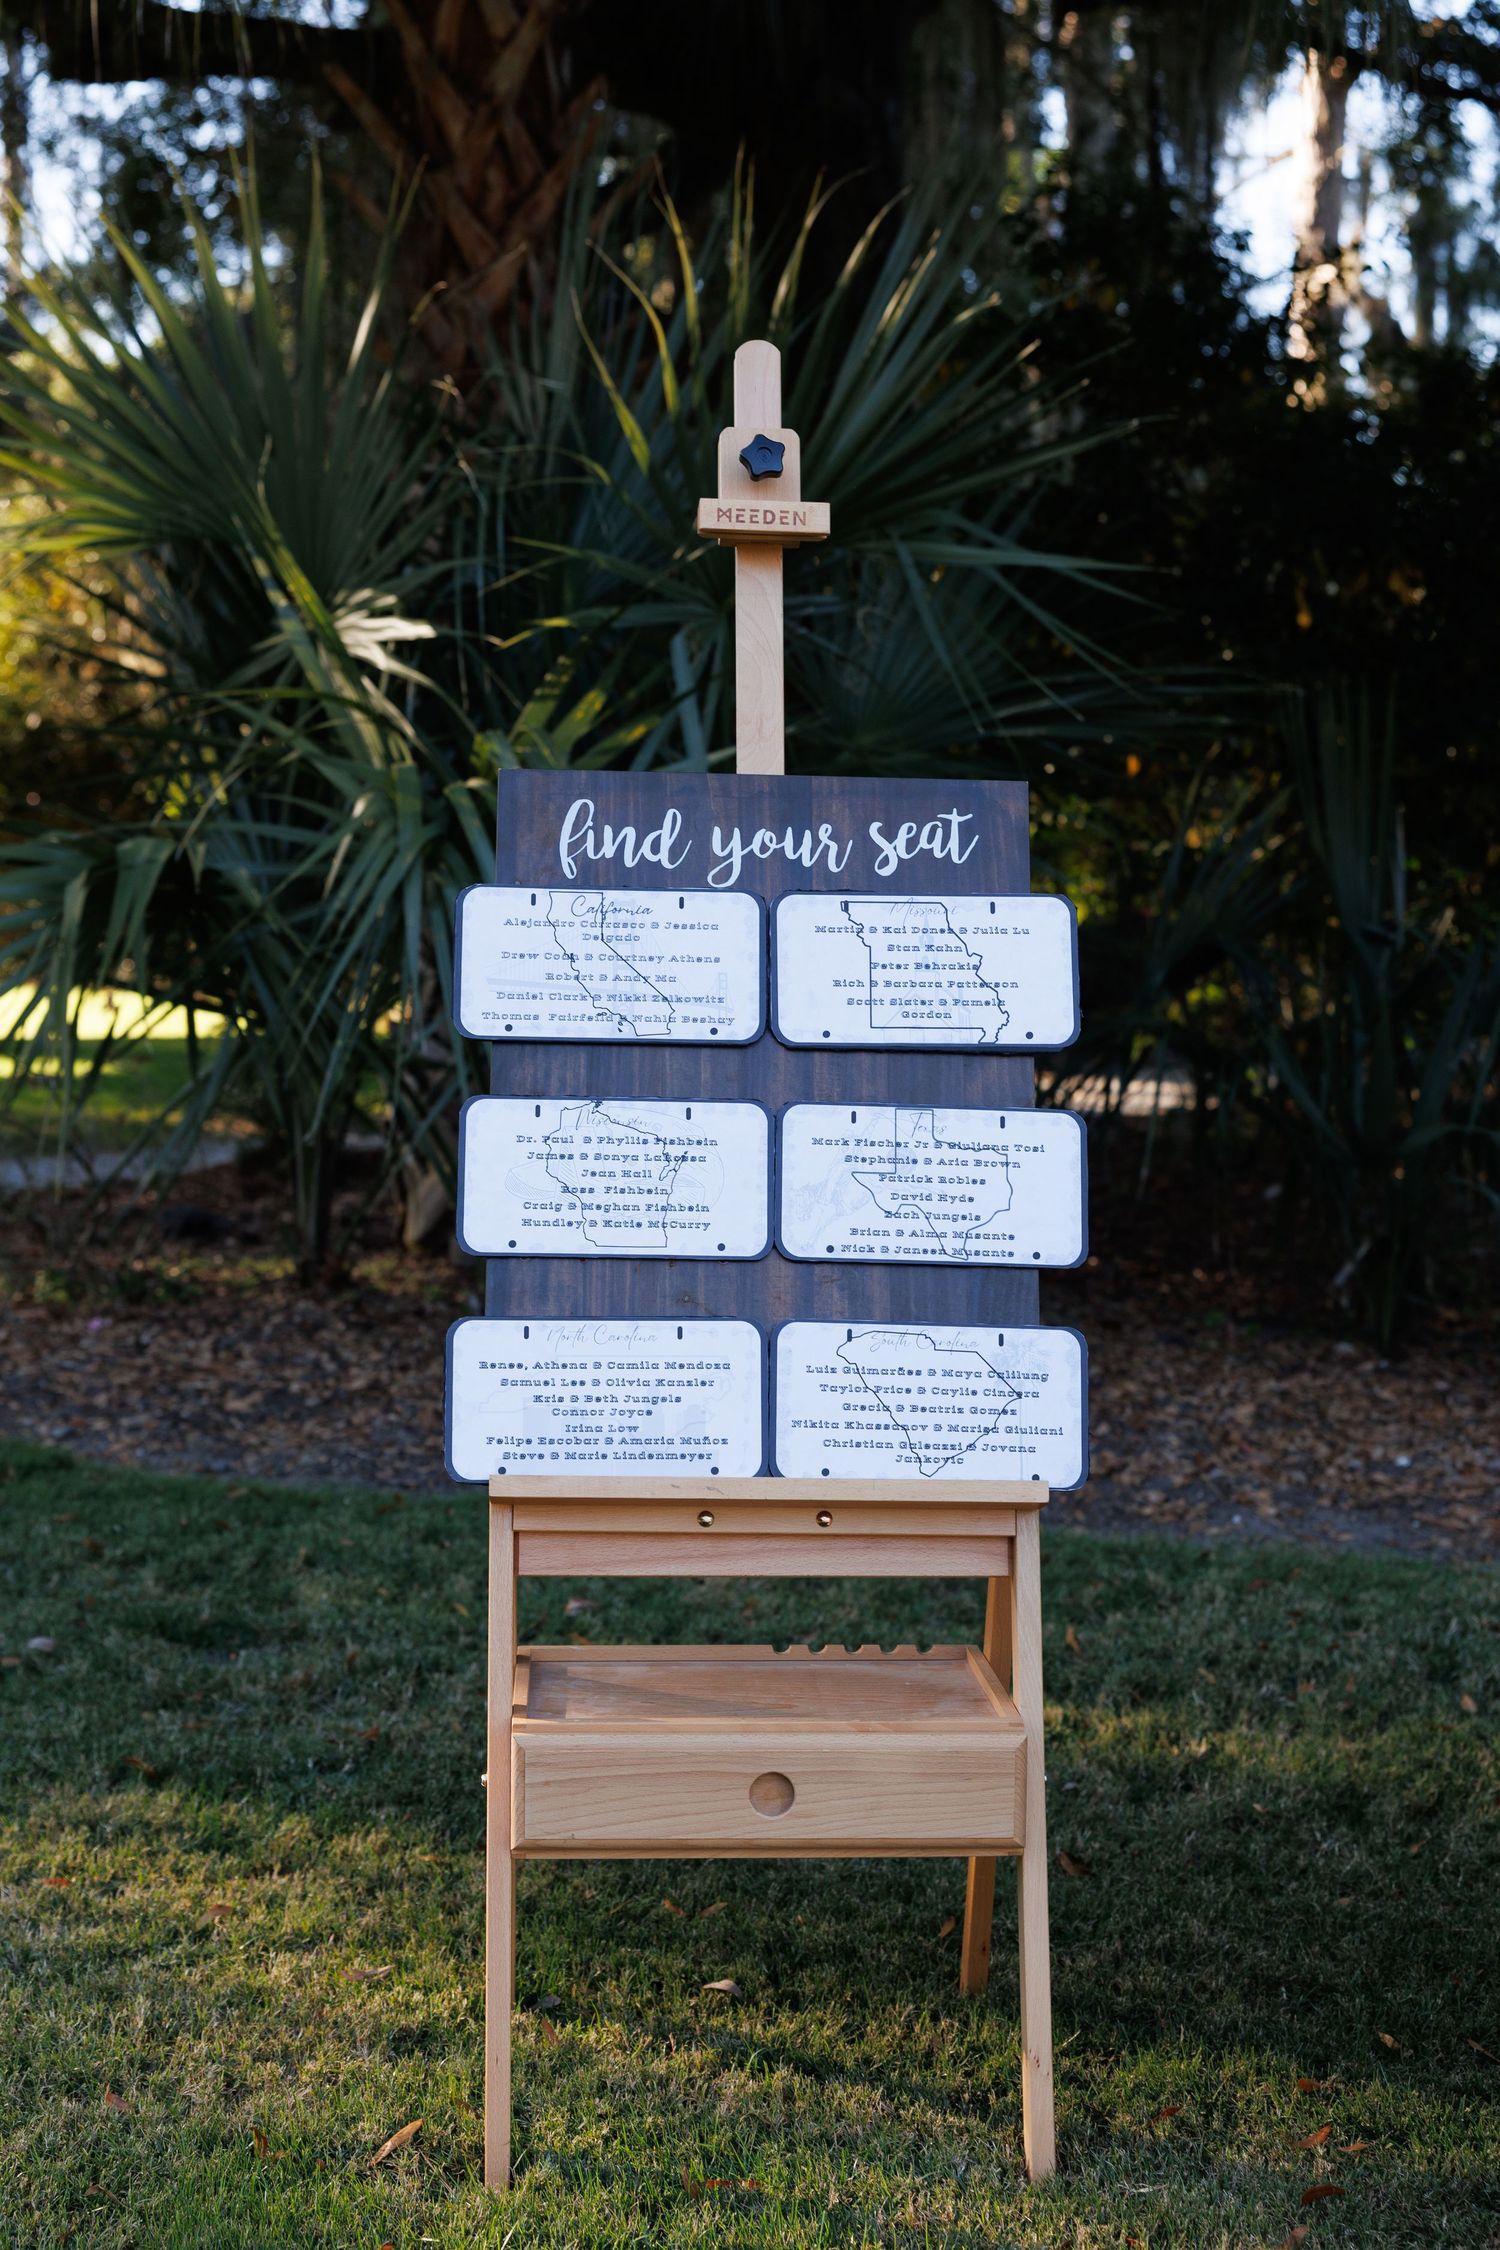 MEEDEN
find your seat
California
Alejandro Carrasco & Jessica
Delgado
Drew Coan & Courtney Athens
Robert & Andy Ma
Daniel Clark & Nikki Zelkowitz
Thomas Fairfeild & Nahla Beshay
Missouri
Martin & Kai Dones & Julia Lu
Stan Kahn
Peter Behrakis
Rich & Barbara Patterson
Scott Slater & Pamela
Gordon
Wisconsin
Dr. Paul & Phyllis Fishbein
James & Sonya LaRossa
Jean Hall
Ross Fishbein
Craig & Meghan Fishbein
Hundley & Katie McCurry
Texas
Mark Fischer Jr & Giuliana Tosi
Stephanie & Aria Brown
Patrick Robles
David Hyde
Zach Jungels
Brian & Alma Musante
Nick & Janeen Musante
North Carolina
Renee, Athena & Camila Mendoza
Samuel Lee & Olivia Kanzler
Kris & Beth Jungels
Connor Joyce
Irina Low
Felipe Escobar & Amaria Muñoz
Steve & Marie Lindenmeyer
South Carolina
Luiz Guimarães & Maya Calilung
Taylor Price & Caylie Cincera
Grecia & Beatriz Gomez
Nikita Khassanov & Marisa Giuliani
Christian Galeazzi & Jovana
Jankovic